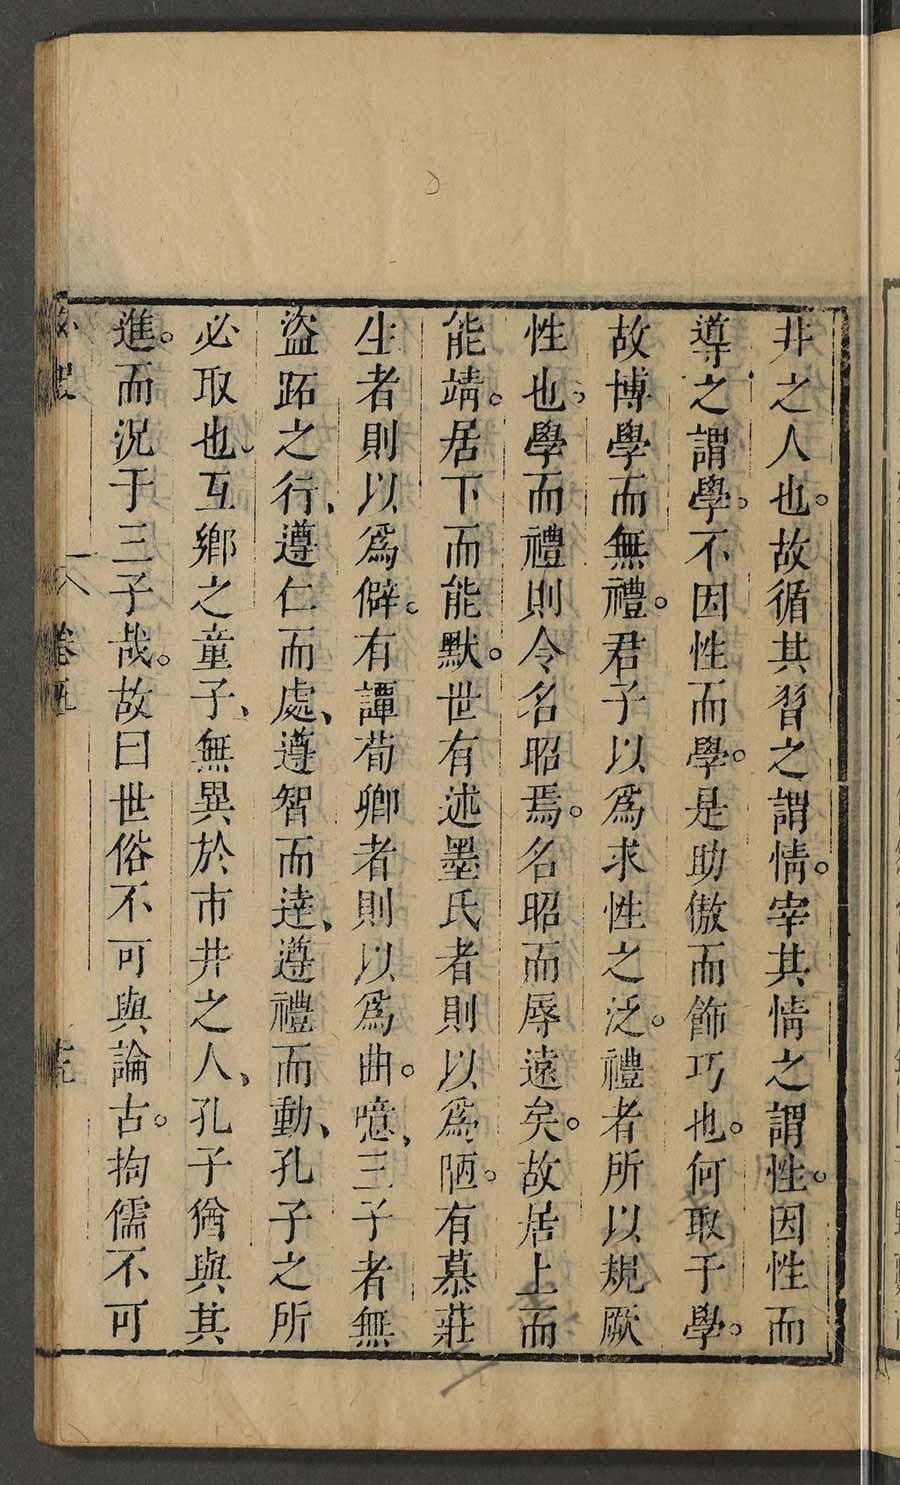 非之人也。故循其習之謂情。宰其情之謂性。因性而
導之謂學。不因性而學。是助傲而飾巧也。何取于學。
故博學而無禮。君子以爲求性之泛。禮者所以規厥
性也。學而禮則令名昭焉。名昭而辱遠矣。故居上而
能靖。居下而能默。世有述墨氏者則以爲陋。有慕莊
生者則以爲僻。有譚荀卿者則以爲曲。噫、三子者無
盜跖之行、遵仁而處、遵智而達、遵禮而動、孔子之所
必取也、互鄉之童子、無異於市井之人、孔子猶與其
進。而況于三子哉。故曰世俗不可與論古。拘儒不可
卷五